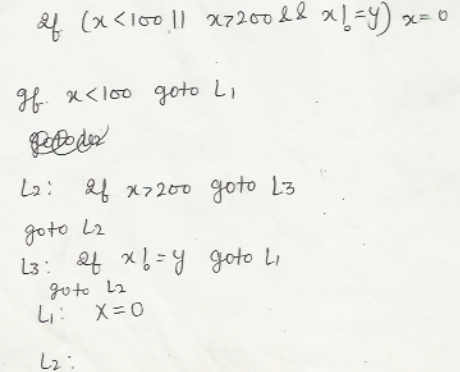 If (x<100 || x>200 && x!=y) x=0
If x<100 goto L1
L2: If x>200 goto L3
goto L2
L3: If x!=y goto L1
goto L2
L1: x=0
L2: